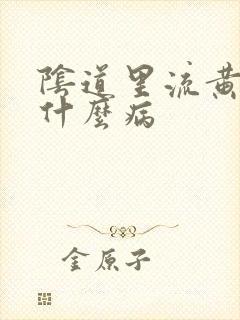 陰道里流黃
什麼病
金原子